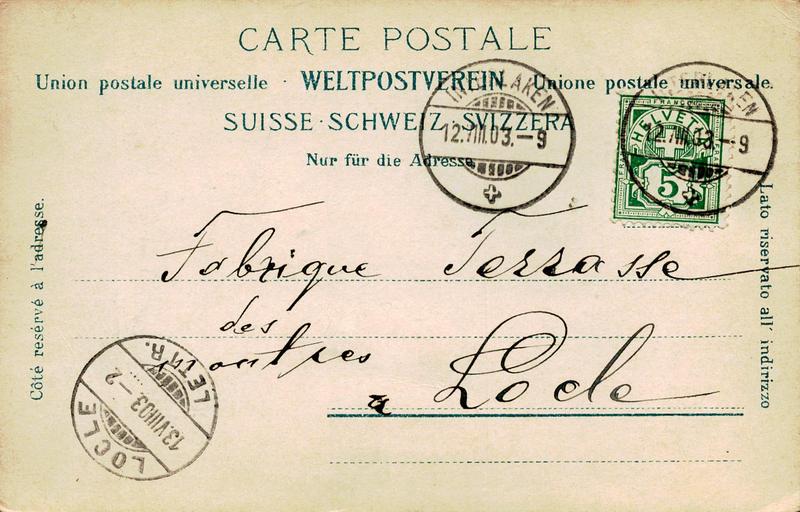 CARTE POSTALE
Union postale universelle · WELTPOSTVEREIN · Unione postale universale.
SUISSE · SCHWEIZ · SVIZZERA
Nur für die Adresse
INTERLAKEN
12.VIII.03.–9
INTERLAKEN
12.VIII.03.–9
FRANCO
HELVETIA
5
Côté resérvé à l'adresse.
Lato riservato all' indirizzo
Fabrique Terrasse
des
montres
a Locle
LOCLE
13.VIII03.–2
LETTR.